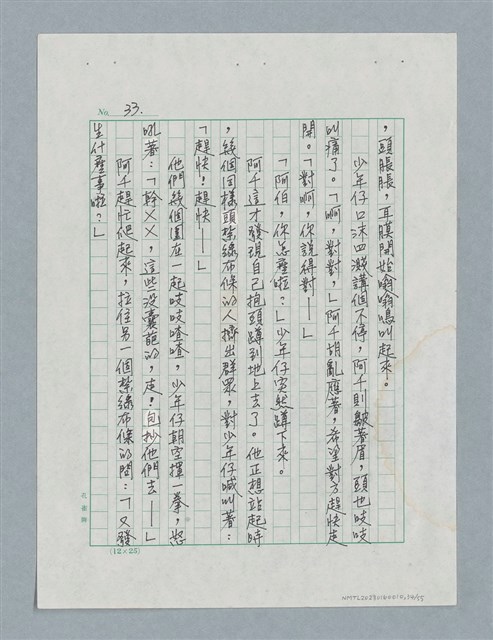 No. 33.
，頭脹脹，耳膜開始嗡嗡鳴叫起來。
少年仔口沫四濺講個不停，阿千則皺著眉，頭也吱吱
叫痛了。「啊，對對，」阿千胡亂應著，希望對方趕快走
開。「對啊，你說得對——」
「阿伯，你怎麼啦？」少年仔突然蹲下來。
阿千這才發現自己抱頭蹲到地上去了。他正想站起時
，幾個同樣頭禁綠布條的人擠出群眾，對少年仔喊叫著：
「趕快！趕快——」
他們幾個圍在一起吱吱喳喳，少年仔朝空揮一拳，怒
吼著：「幹××，這些沒囊葩的，走！包抄他們去——」
阿千趕忙爬起來，拉住另一個禁綠布條的問：「又發
生什麼事啦？」
(12×25)